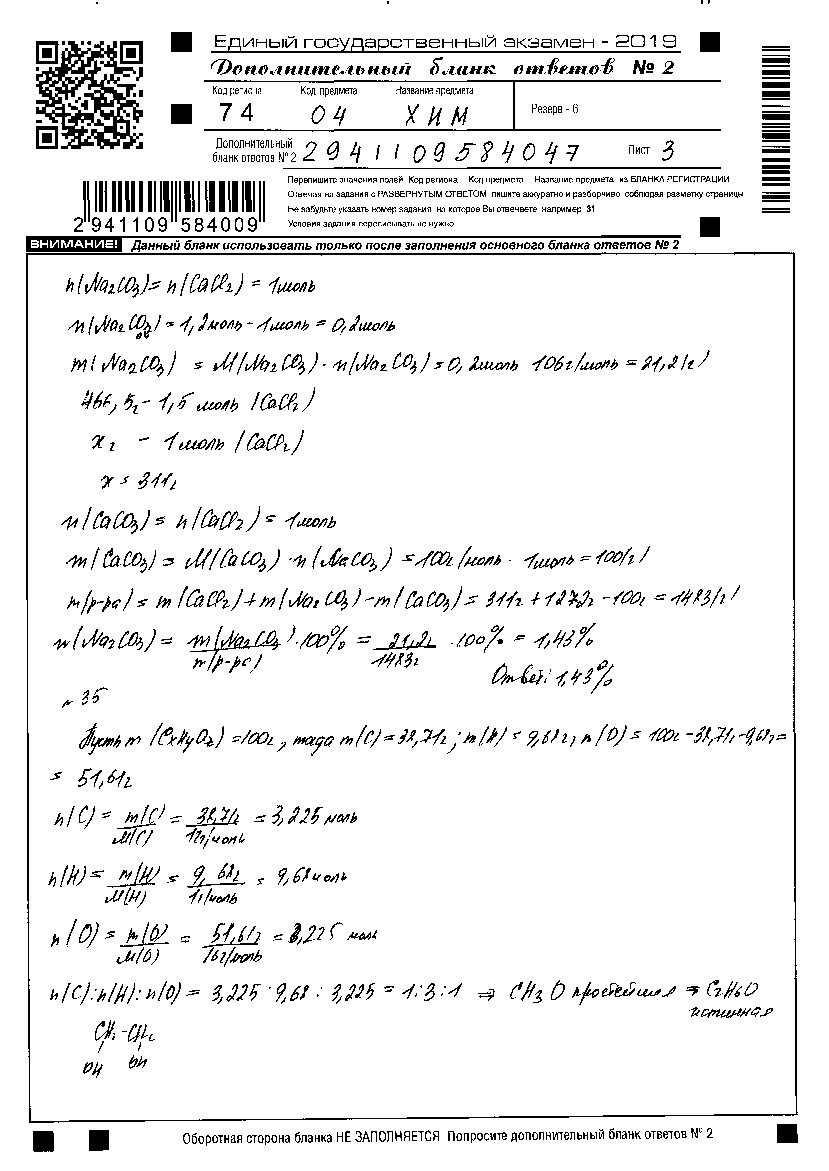 Единый государственный экзамен - 2019
Дополнительный бланк ответов № 2
Код региона Код предмета Название предмета
74 04 ХИМ
Резерв - 6
Дополнительный
бланк ответов № 2 2941109584047 Лист 3
Перепишите значения полей Код региона Код предмета Название предмета из БЛАНКА РЕГИСТРАЦИИ
Отвечая на задания с РАЗВЕРНУТЫМ ОТВЕТОМ пишите аккуратно и разборчиво соблюдая разметку страницы
Не забудьте указать номер задания на которое Вы отвечаете например 31
Условия задания переписывать не нужно
2 941109 584009
ВНИМАНИЕ! Данный бланк использовать только после заполнения основного бланка ответов № 2
n(Na2CO3) = n(CaCl2) = 1моль
n(Na2CO3) = 1,2моль - 1моль = 0,2моль
m(Na2CO3) = M(Na2CO3) · n(Na2CO3) = 0,2моль 106г/моль = 21,2(г)
466,5г - 1,5 моль (CaCl2)
xг - 1моль (CaCl2)
x = 311г
n(CaCO3) = n(CaCl2) = 1моль
m(CaCO3) = M(CaCO3) · n(NaCO3) = 100г/моль · 1моль = 100(г)
m(р-ра) = m(CaCl2) + m(Na2CO3) - m(CaCO3) = 311г + 1272г - 100г = 1483(г)
w(Na2CO3) = m(Na2CO3)/m(р-ра) · 100% = 21,2г/1483г · 100% = 1,43%
Ответ: 1,43%
№ 35
Пусть m (CxHyOz) = 100г, тогда m(C) = 38,71г; m(H) = 9,68г, n(O) = 100г - 38,71г - 9,68г =
= 51,61г
n(C) = m(C)/M(C) = 38,71г/12г/моль = 3,225 моль
n(H) = m(H)/M(H) = 9,68г/1г/моль = 9,68моль
n(O) = m(O)/M(O) = 51,61г/16г/моль = 3,225 моль
n(C):n(H):n(O) = 3,225 : 9,68 : 3,225 = 1:3:1 ⇒ CH3O простейшая ⇒ C2H6O
истинная
CH2-CH2
OH OH
Оборотная сторона бланка НЕ ЗАПОЛНЯЕТСЯ Попросите дополнительный бланк ответов № 2